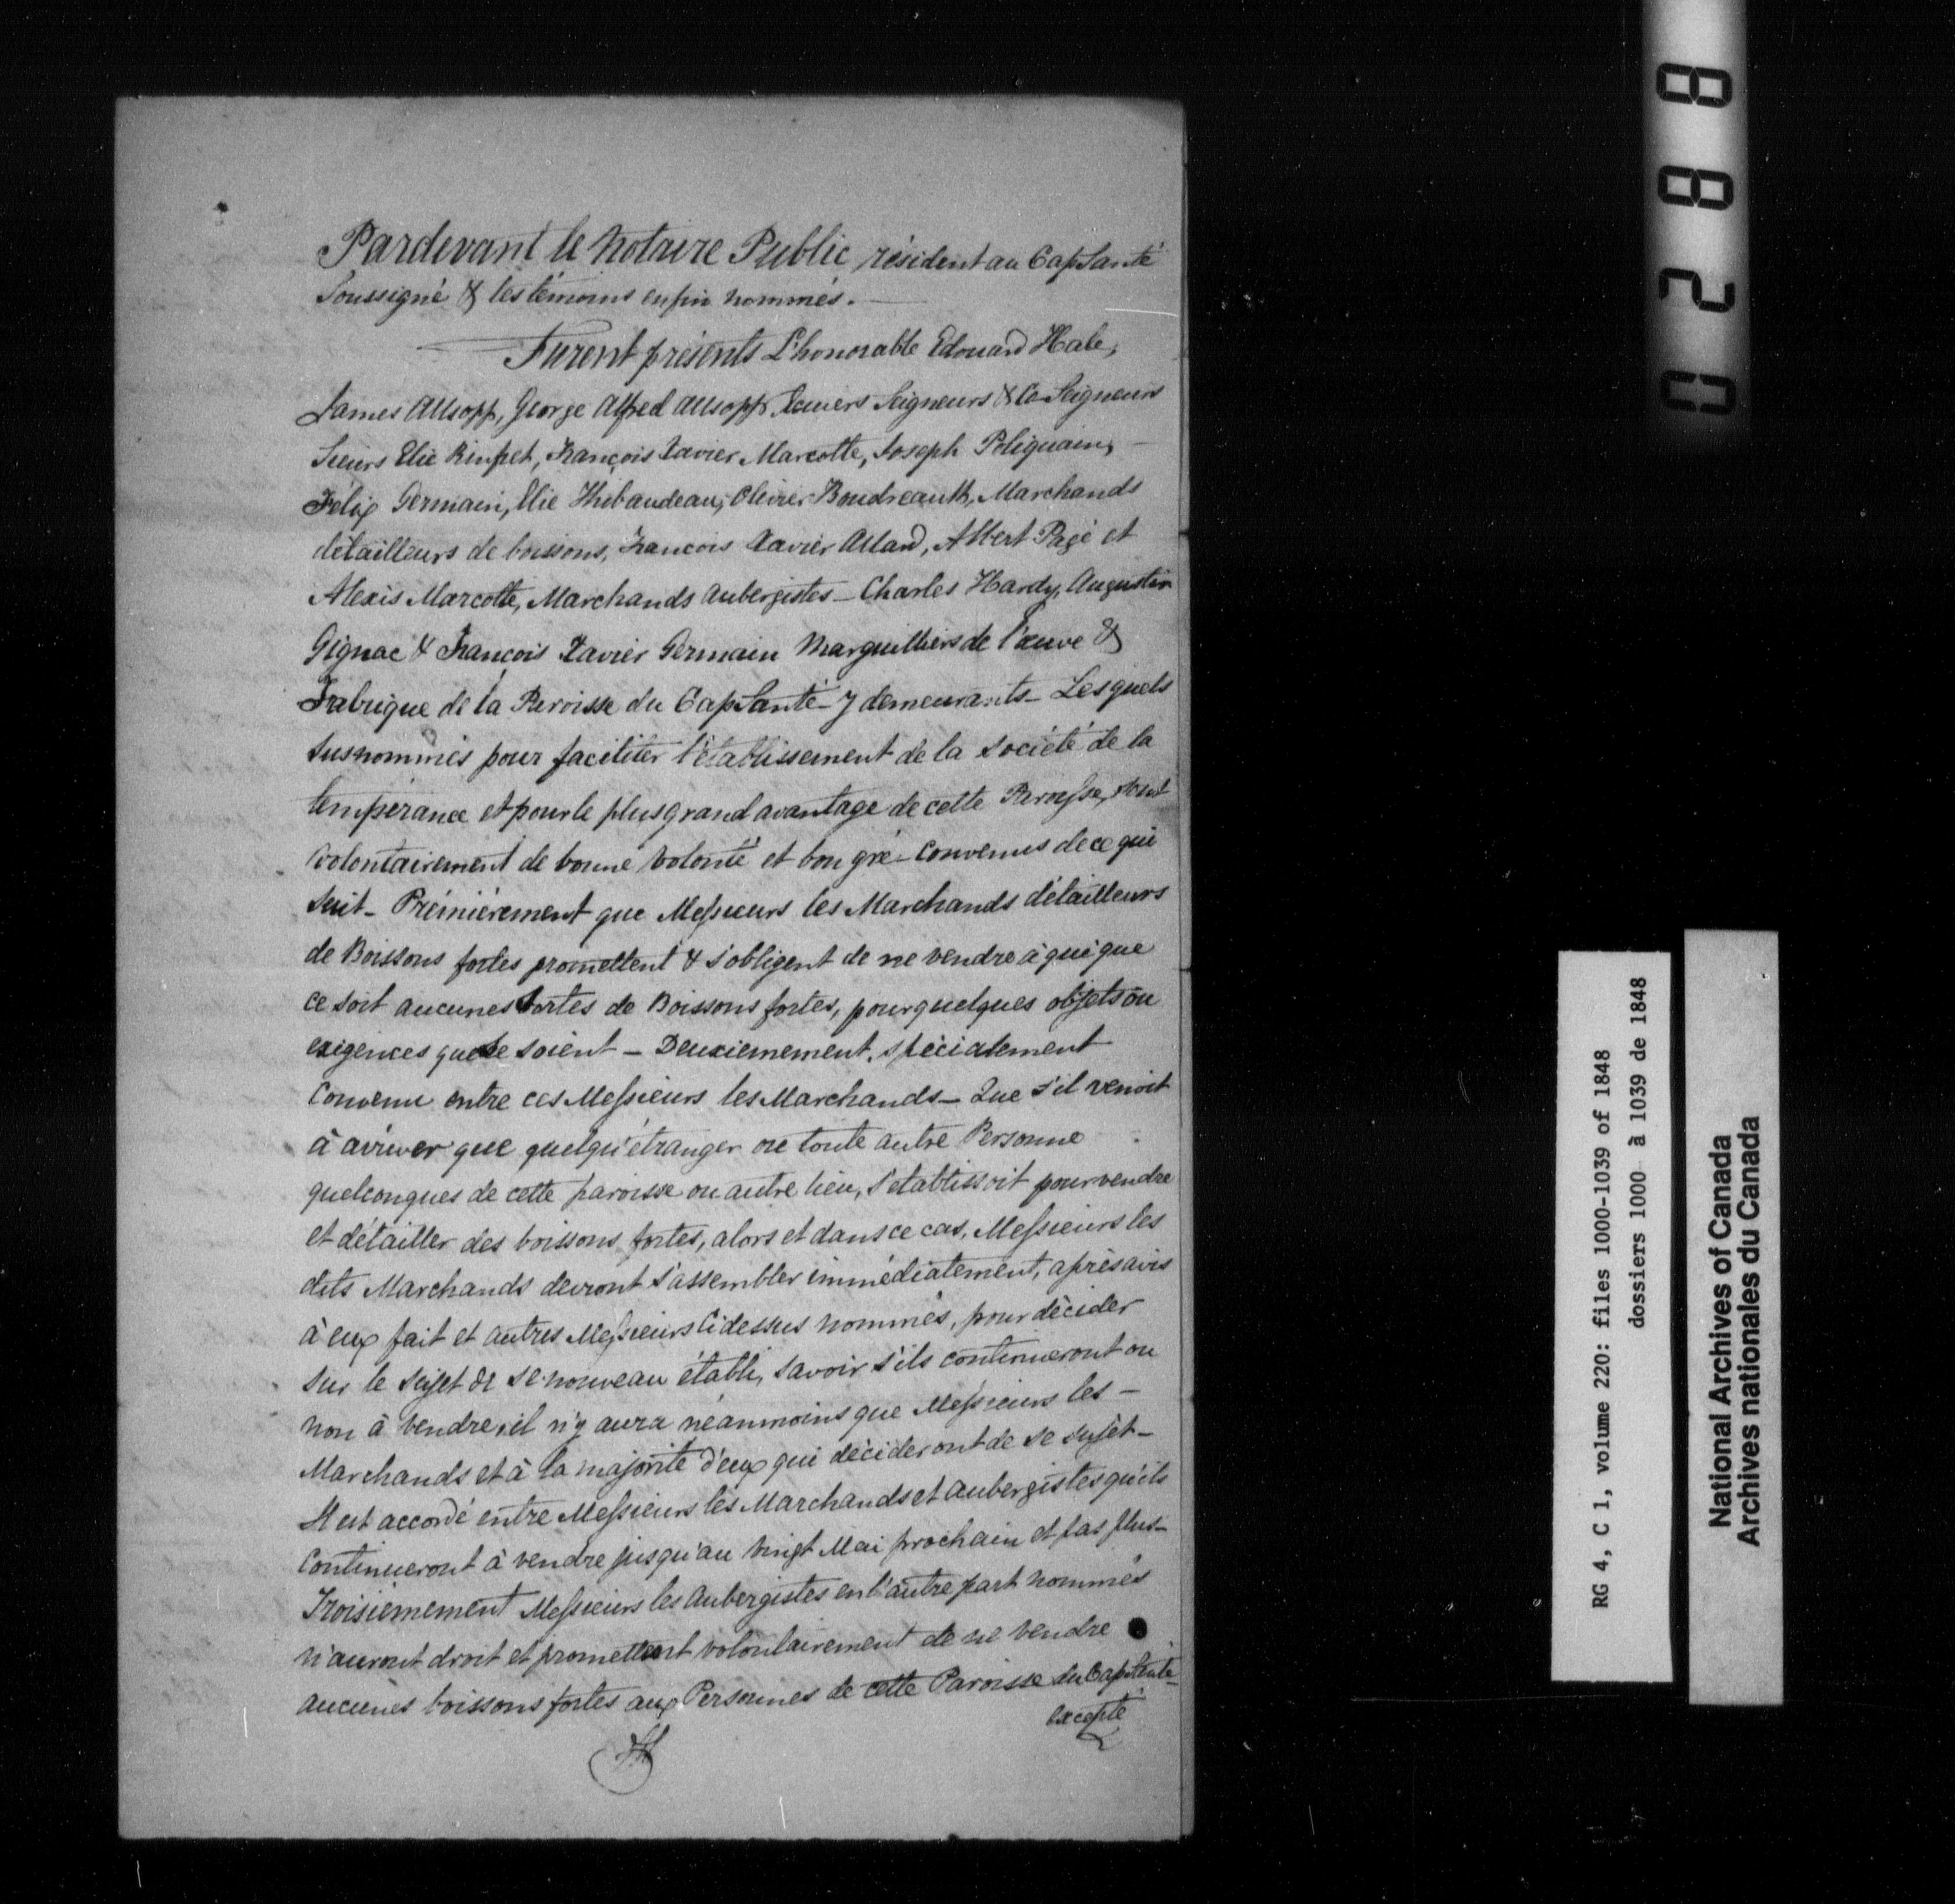 Pardevant le Notaire Public résident au Cap Santé
Soussigné & les témoins enfin nommés. —
Furent présents L'honorable Edouard Hale,
James Allsopp, George Alfred Allsopp Ecuiers Seigneurs & Co-Seigneurs
Sieurs Elie Rinfret, François Xavier Marcotte, Joseph Poliquain,
Félix Germain, Elie Thibaudeau, Olivier Boudreault, Marchands
détailleurs de boissons, Francois Xavier Allard, Albert Pagé et
Alexis Marcotte, Marchands Aubergistes — Charles Hardy, Augustin
Gignac & François Xavier Germain Marguilliers de l'œuve &
Fabrique de la Paroisse du Cap Santé y demeurants — Lesquels
susnommés pour faciliter l'établissement de la société de la
tempérance et pour le plus grand avantage de cette Paroisse, sont
volontairement de bonne volonté et bon gré — Convenus de ce qui
suit — Prémièrement que Messieurs les Marchands détailleurs
de Boissons fortes promettent & s'obligent de ne vendre à qui que
ce soit aucunes sortes de Boissons fortes, pour quelques objets ou
exigences que ce soient — Deuxiemement, spécialement
Convenu entre ces Messieurs les Marchands — Que s'il venoit
à arriver que quelqu'étranger ou toute autre Personne
quelconques de cette paroisse ou autre lieu, s'établissoit pour vendre
et détailler des boissons fortes, alors et dans ce cas, Messieurs les
dits Marchands devront s'assembler immédiatement, après avis
à eux fait et autres Messieurs Cidessus nommés, pour décider
sur le sujet de se nouveau établi, savoir s'ils continueront ou
non à vendre, il n'y aura néanmoins que Messieurs les —
Marchands et à la majorité d'eux qui décideront de se sujet —
Il est accordé entre Messieurs les Marchands et Aubergistes qu'ils
Continueront à vendre jusqu'au vingt Mai prochain et pas plus —
Troisiemement Messieurs les Aubergistes en l'autre part nommés
n'auront droit et promettent volontairement de ne vendre
aucunes boissons fortes aux Personnes de cette Paroisse du Cap Santé —
Excepté
0288
RG 4, C 1, volume 220: files 1000-1039 of 1848
dossiers 1000 à 1039 de 1848
National Archives of Canada
Archives nationales du Canada